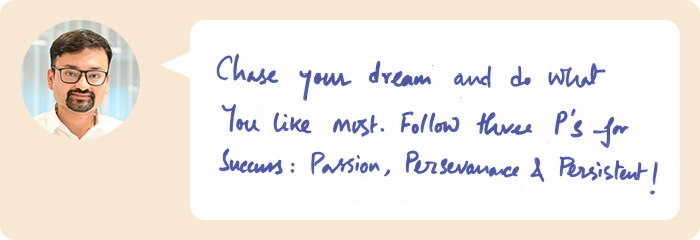 Chase your dream and do what
You like most. Follow three P's for
Success: Passion, Perseverance & Persistent!